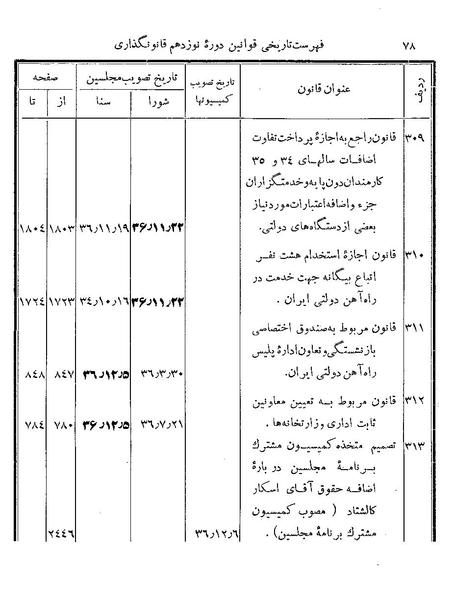 ۷۸ فهرست تاریخی قوانین دورهٔ نوزدهم قانونگذاری
ردیف عنوان قانون تاریخ تصویب کمیسیونها تاریخ تصویب مجلسین صفحه
شورا سنا از تا
۳۰۹ قانون راجع به اجازهٔ پرداخت تفاوت
اضافات سالهای ۳۴ و ۳۵
کارمندان دون پایه و خدمتگزاران
جزء و اضافه اعتبارات مورد نیاز
بعضی از دستگاه‌های دولتی. ۳۶٫۱۱٫۲۲ ۳۶٫۱۱٫۱۹ ۱۸۰۳ ۱۸۰٤
۳۱۰ قانون اجازهٔ استخدام هشت نفر
اتباع بیگانه جهت خدمت در
راه آهن دولتی ایران . ۳۶٫۱۱٫۲۲ ۳٤٫۱۰٫۱۶ ۱۷۲۳ ۱۷۲٤
۳۱۱ قانون مربوط به صندوق اختصاصی
بازنشستگی و تعاون ادارهٔ پلیس
راه آهن دولتی ایران. ۳۶٫۳٫۳۰ ۳۶٫۱۲٫۵ ۸٤۷ ۸٤۸
۳۱۲ قانون مربوط به تعیین معاونین
ثابت اداری وزارتخانه‌ها . ۳۶٫۷٫۲۱ ۳۶٫۱۲٫۵ ۷۸۰ ۷۸٤
۳۱۳ تصمیم متخذه کمیسیون مشترك
برنامهٔ مجلسین دربارهٔ
اضافه حقوق آقای اسکار
کالشتاد ( مصوب کمیسیون
مشترك برنامهٔ مجلسین) . ۳۶٫۱۲٫۶ ۲٤٤۶